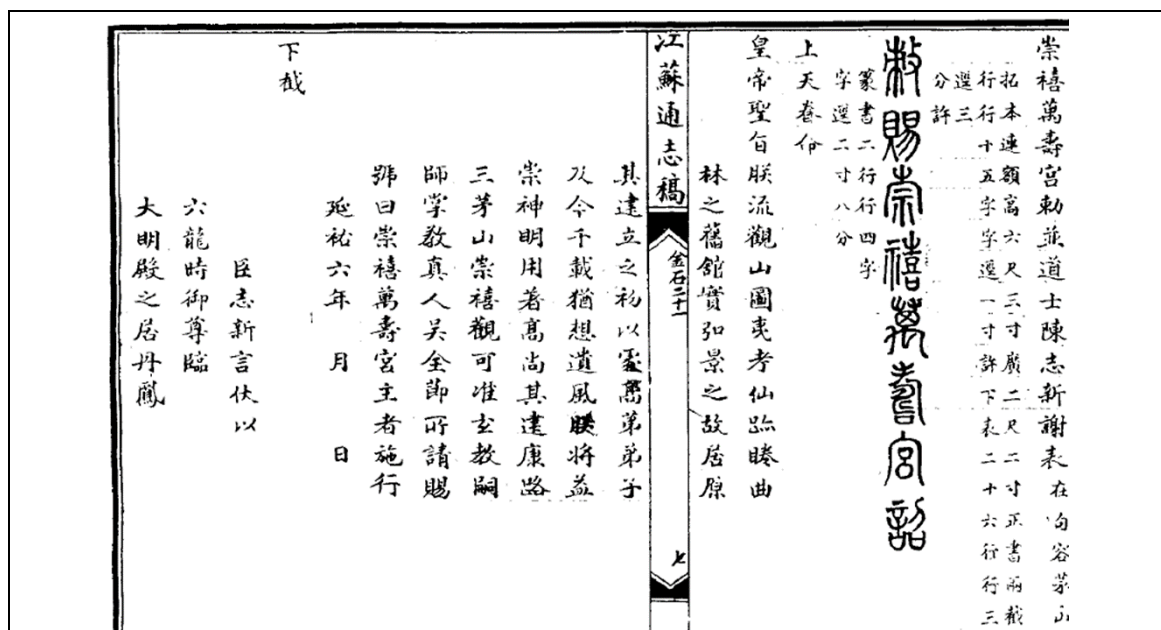 崇禧萬壽宮勅並道士陳志新謝表在句容茅山
拓本連額高六尺三寸廣二尺二寸正書兩截
行行十五字字逕一寸許下表二十六行行三
逕三
分許
敕賜崇禧萬壽宮詔
篆書二行行四字
字逕二寸八分
上天眷命
皇帝聖旨朕流觀山圖夷考仙跡睠曲
林之舊館實弘景之故居原
江蘇通志稿
金石二十一
七
其建立之初以處萬弟弟子
及今千載猶想遺風朕將益
崇神明用著高尚其建康路
三茅山崇禧觀可准玄教嗣
師掌教真人吴全節所請賜
號曰崇禧萬壽宮主者施行
延祐六年 月 日
下截
臣志新言伏以
六龍時御尊臨
大明殿之居丹鳳